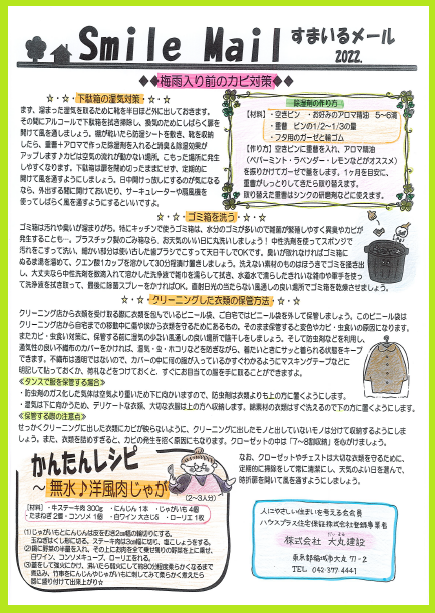 Smile Mail すまいるメール
2022.
◆◆梅雨入り前のカビ対策◆◆
☆・☆・☆ 下駄箱の湿気対策 ☆・☆・☆
まず、溜まった湿気を取るために靴を半日ほど外に出しておきます。
その間にアルコールで下駄箱を拭き掃除し、換気のためにしばらく扉を
開けて風を通しましょう。棚が乾いたら防湿シートを敷き、靴を収納
したら、重曹＋アロマで作った除湿剤を入れると消臭＆除湿効果が
アップします♪カビは空気の流れが動かない場所、こもった場所に発生
しやすくなります。下駄箱は扉を閉め切ったままにせず、定期的に
開けて風を通すようにしましょう。日中開けっ放しにするのが気になる
なら、外出する間に開けておいたり、サーキュレーターや扇風機を
使ってしばらく風を通すようにするといいですよ。
除湿剤の作り方
【材料】・空きビン ・お好みのアロマ精油 5～6滴
・重曹 ビンの1/2～1/3の量
・フタ用のガーゼと輪ゴム
【作り方】空きビンに重曹を入れ、アロマ精油
（ペパーミント・ラベンダー・レモンなどがオススメ）
を振りかけてガーゼで蓋をします。1ヶ月を目安に、
重曹がしっとりしてきたら取り替えます。
取り替えた重曹はシンクの研磨剤などに使えます。
☆・☆・☆ ゴミ箱を洗う ☆・☆・☆
ゴミ箱は汚れや臭いが溜まりがち。特にキッチンで使うゴミ箱は、水分のゴミが多いので雑菌が繁殖しやすく異臭やカビが
発生することも…。プラスチック製のごみ箱なら、お天気のいい日に丸洗いしましょう！ 中性洗剤を使ってスポンジで
汚れをこすって洗い、細かい部分は使い古した歯ブラシでこすって天日干しでOKです。臭いが取れなければゴミ箱に
ぬるま湯を溜めて、クエン酸1カップを溶かして30分程漬け置きしましょう。洗えない素材のものはほうきでゴミを掻き出
し、大丈夫なら中性洗剤を数滴入れて溶かした洗浄液で雑巾を濡らして拭き、水道水で濡らしたきれいな雑巾や軍手を使っ
て洗浄液を拭き取って、最後に除菌スプレーをかければOK。直射日光の当たらない風通しの良い場所でゴミ箱を乾燥させましょう。
☆・☆・☆ クリーニングした衣類の保管方法 ☆・☆・☆
クリーニング店から衣類を受け取る際に衣類を包んでいるビニール袋は、ご自宅ではビニール袋を外して保管しましょう。このビニール袋は
クリーニング店から自宅までの移動中に傷や埃から衣類を守るためにあるもの。そのまま保管すると変色やカビ・虫食いの原因になります。
またカビ・虫食い対策に、保管する前に湿気の少ない風通しの良い場所で陰干しをしましょう。そして防虫剤などを利用し、
通気性の良い不織布のカバーをかければ、湿気・虫・ホコリなどを防ぎながら、着たいときにサッと着られる状態をキープ
できます。不織布は透明ではないので、カバーの中に何の服が入っているかすぐわかるようにマスキングテープなどに
明記して貼っておくか、荷札などをつけておくと、すぐにお目当ての服を手に取ることができますよ。
≪タンスで服を保管する場合≫
・防虫剤のガス化した気体は空気より重いため下に向かいますので、防虫剤は衣類よりも上の方に置くようにします。
・湿気は下に向かうため、デリケートな衣類、大切な衣服は上の方へ収納します。綿素材の衣類はすぐ洗えるので下の方に置くようにします。
≪保管する際の注意点≫
せっかくクリーニングに出した衣類にカビが移らないように、クリーニングに出したモノと出していないモノは分けて収納するようにしま
しょう。また、衣類を詰めすぎると、カビの発生を招く原因にもなります。クローゼットの中は「7～8割収納」を心がけましょう。
なお、クローゼットやチェストは大切な衣類を守るために、
定期的に掃除をして常に清潔にし、天気のよい日を選んで、
時折扉を開いて風を通すようにしましょう。
かんたんレシピ
～無水♪洋風肉じゃが
（2～3人分）
【材料】・牛ステーキ肉 300g ・にんじん 1本 ・じゃがいも 4個
・たまねぎ 2個・コンソメ 1個 ・白ワイン 大さじ5 ・ローリエ 1枚
(1)じゃがいもとにんじんは皮をむき2㎝幅の輪切りにする。
玉ねぎはくし形に切る。ステーキ肉は3㎝幅に切り、塩こしょうをする。
(2)鍋に野菜の半量を入れ、その上にお肉を全て乗せ残りの野菜を上に乗せ、
白ワイン、コンソメキューブ、ローリエを入れる。
(3)蓋をして強火にかけ、沸いたら弱火にして約80分程度柔らかくなるまで
煮込み、竹串をにんじんやじゃがいもに刺してみて柔らかく煮えたら
器に盛り付けて出来上がり☆
人にやさしい住まいを考える名会員
ハウスプラス住宅保証株式会社登録事業者
株式会社 大丸建設
東京都稲城市大丸 71-2
TEL 042-377-4441